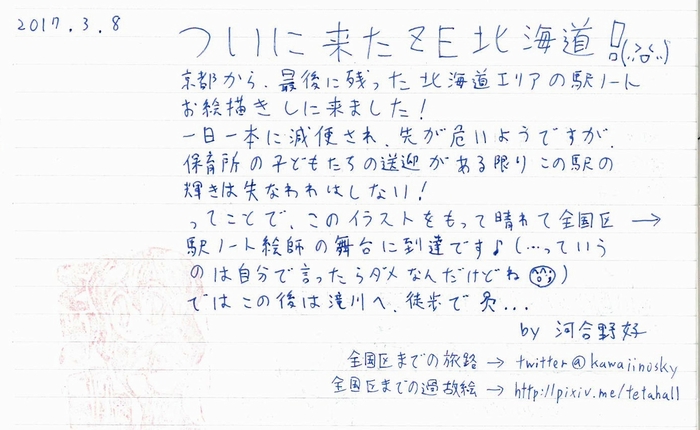 2017.3.8
ついに来たZE北海道!
京都から、最後に残った北海道エリアの駅ノート
お絵描きしに来ました!
一日一本に減便され、先が危いようですが、
保育所の子どもたちの送迎がある限りこの駅の
輝きは失なわれはしない!
ってことで、このイラストをもって晴れて全国区→
駅ノート絵師の舞台に到達です♪(…っていう
のは自分で言ったらダメなんだけどね)
ではこの後は滝川へ、徒歩で灸...
by 河合野好
全国区までの旅路→twitter@kawaiinosky
全国区までの過故絵→http://pixiv.me/tetahall